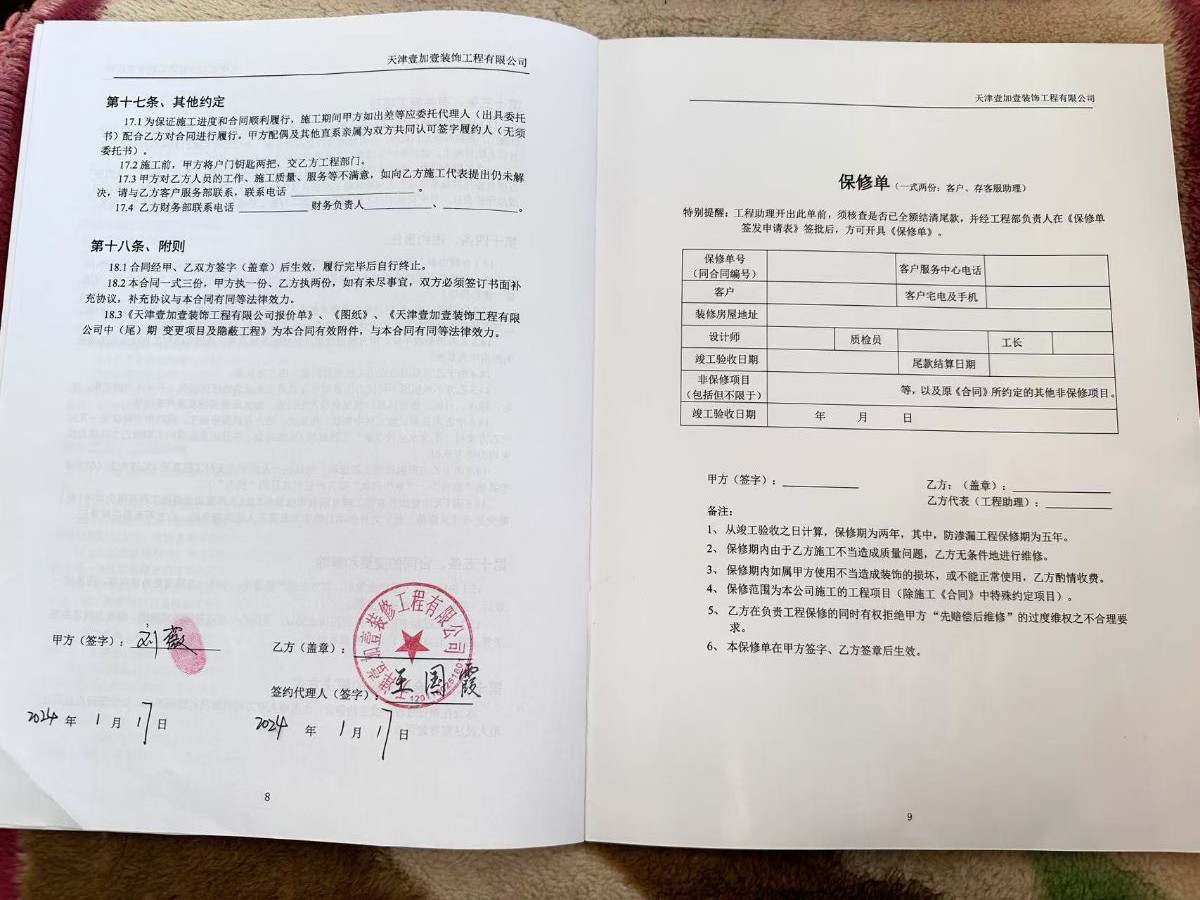 天津壹加壹装饰工程有限公司
第十七条、其他约定
17.1 为保证施工进度和合同顺利履行，施工期间甲方如出差等应委托代理人（出具委托
书）配合乙方对合同进行履行。甲方配偶及其他直系亲属为双方共同认可签字履约人（无须
委托书）。
17.2 施工前，甲方将户门钥匙两把，交乙方工程部门。
17.3 甲方对乙方人员的工作、施工质量、服务等不满意，如向乙方施工代表提出仍未解
决，请与乙方客户服务部联系，联系电话 ____________________ 。
17.4 乙方财务部联系电话 __________ 财务负责人__________、____________。
第十八条、附则
18.1 合同经甲、乙双方签字（盖章）后生效，履行完毕后自行终止。
18.2 本合同一式三份，甲方执一份、乙方执两份，如有未尽事宜，双方必须签订书面补
充协议，补充协议与本合同有同等法律效力。
18.3《天津壹加壹装饰工程有限公司报价单》、《图纸》、《天津壹加壹装饰工程有限
公司中（尾）期 变更项目及隐蔽工程》为本合同有效附件，与本合同有同等法律效力。
甲方（签字）：刘薇
乙方（盖章）：
天津壹加壹装修工程有限公司
签约代理人（签字）：王国霞
2024 年 1 月 17 日
2024 年 1 月 17 日
8
天津壹加壹装饰工程有限公司
保修单（一式两份：客户、存客服助理）
特别提醒：工程助理开出此单前，须核查是否已全额结清尾款，并经工程部负责人在《保修单
签发申请表》签批后，方可开具《保修单》。
保修单号
（同合同编号）
客户服务中心电话
客户
客户宅电及手机
装修房屋地址
设计师
质检员
工长
竣工验收日期
尾款结算日期
非保修项目
（包括但不限于）
等，以及原《合同》所约定的其他非保修项目。
竣工验收日期
年 月 日
甲方（签字）：____________
乙方：（盖章）：________________
乙方代表（工程助理）：__________
备注：
1、 从竣工验收之日计算，保修期为两年，其中，防渗漏工程保修期为五年。
2、 保修期内由于乙方施工不当造成质量问题，乙方无条件地进行维修。
3、 保修期内如属甲方使用不当造成装饰的损坏，或不能正常使用，乙方酌情收费。
4、 保修范围为本公司施工的工程项目（除施工《合同》中特殊约定项目）。
5、 乙方在负责工程保修的同时有权拒绝甲方“先赔偿后维修”的过度维权之不合理要
求。
6、 本保修单在甲方签字、乙方签章后生效。
9